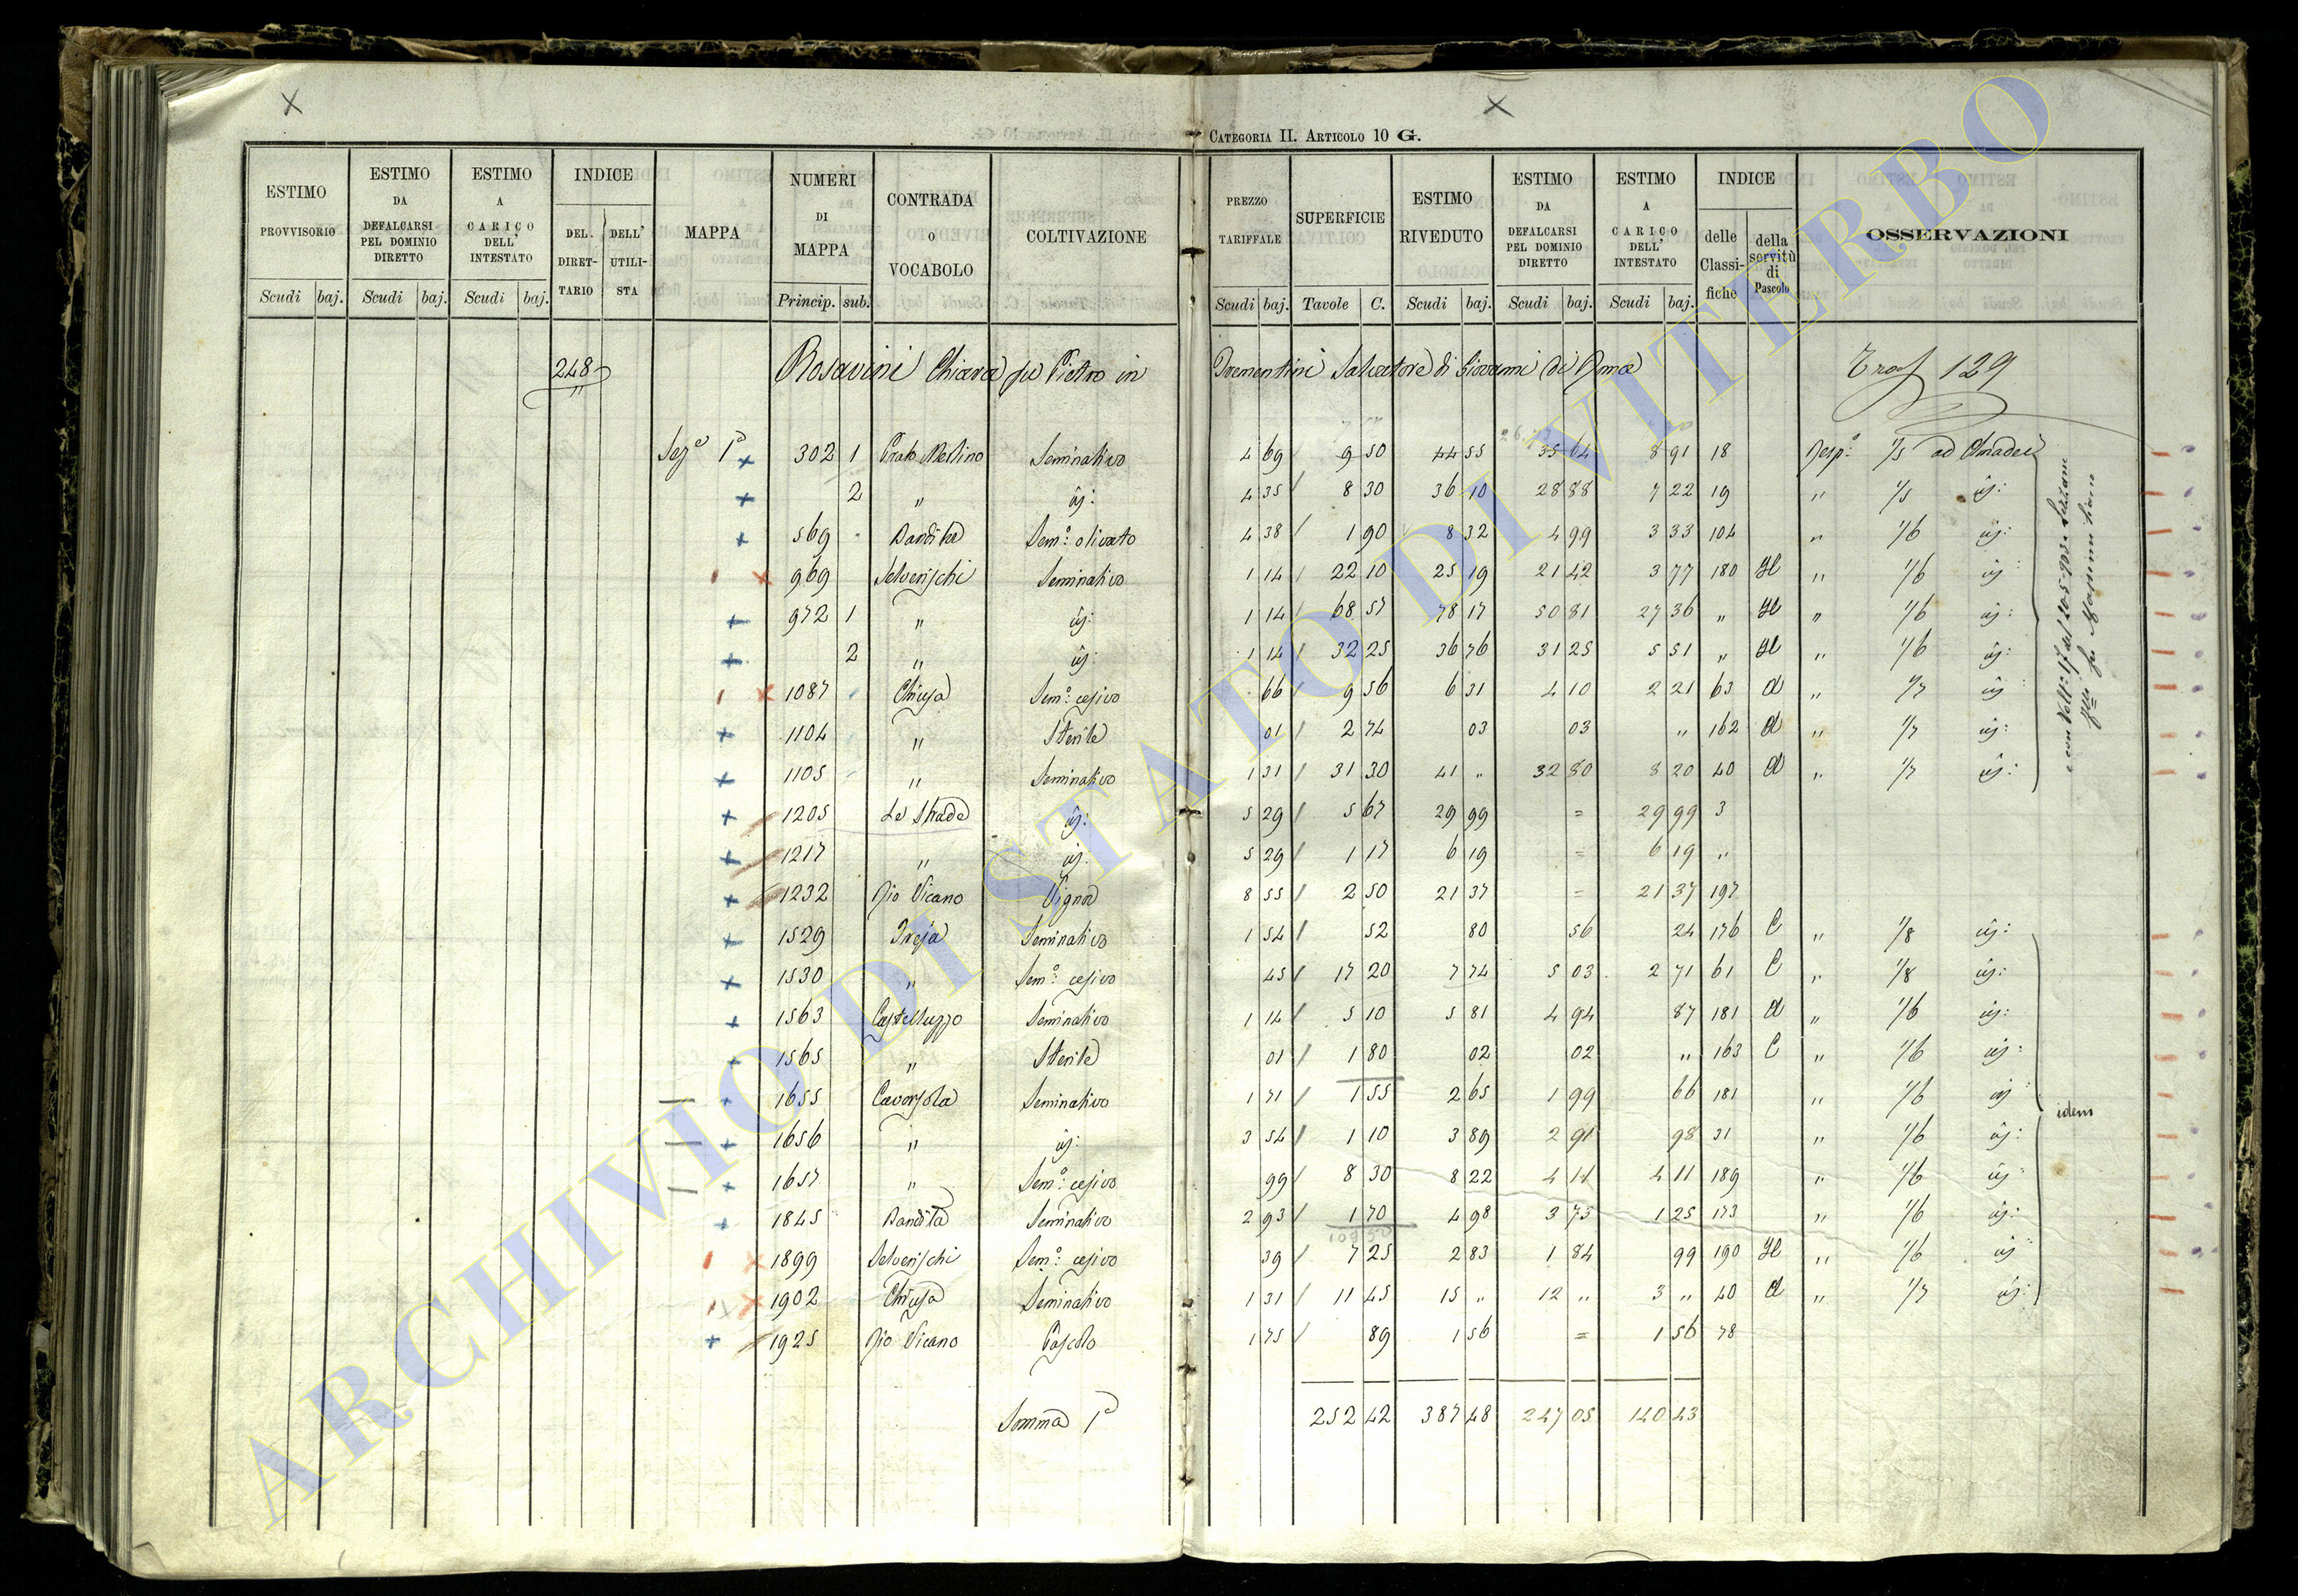 CATEGORIA II. ARTICOLO 10 G.
ESTIMO PROVVISORIO Scudi baj.
ESTIMO DA DEFALCARSI PEL DOMINIO DIRETTO Scudi baj.
ESTIMO A CARICO DELL' INTESTATO Scudi baj.
INDICE DEL DIRET-TARIO DELL' UTILI-STA
MAPPA
NUMERI DI MAPPA Princip. sub.
CONTRADA o VOCABOLO
COLTIVAZIONE
PREZZO TARIFFALE Scudi baj.
SUPERFICIE Tavole C.
ESTIMO RIVEDUTO Scudi baj.
ESTIMO DA DEFALCARSI PEL DOMINIO DIRETTO Scudi baj.
ESTIMO A CARICO DELL' INTESTATO Scudi baj.
INDICE delle Classi-fiche della servitù di Pascolo
OSSERVAZIONI
248 Rosavini Chiara fu Pietro in Trementini Salvatore di Giovanni 129
Sez.e 1a 302 1 Prato Seminativo 4 69 9 50 44 55 35 64 8 91 18 Risp: 1/5 ad Amadei
2 " id: 4 35 8 30 36 10 28 88 7 22 19 " 1/5 id:
569 Bandita Sem.o olivato 4 38 1 90 8 32 4 99 3 33 104 " 1/6 id:
969 Selverischi Seminativo 1 14 22 10 25 19 21 42 3 77 180 H " 1/6 id
972 1 " id: 1 14 68 57 78 17 50 81 27 36 " H " 1/6 id:
2 " id: 1 14 32 25 36 76 31 25 5 51 " H " 1/6 id:
1087 Chiusa Sem.o cesivo 66 9 56 6 31 4 10 2 21 63 A " 1/7 id
1104 " Sterile 01 2 74 03 03 " 162 A " 1/7 id:
1105 " Seminativo 1 31 31 30 41 " 32 80 8 20 40 A " 1/7 id:
1205 Le Strade id: 5 29 5 67 29 99 = 29 99 3
1217 " id. 5 29 1 17 6 19 = 6 19 "
1232 Rio Vicano Vigna 8 55 2 50 21 37 = 21 37 197
1529 Treja Seminativo 1 54 52 80 56 24 176 C " 1/8 id:
1530 " Sem.o cesivo 45 17 20 7 74 5 03 2 71 61 C " 1/8 id:
1563 Castelluzzo Seminativo 1 14 5 10 5 81 4 94 87 181 A " 1/6 id:
1565 " Sterile 01 1 80 02 02 " 163 C " 1/6 id:
1655 Cavarsola Seminativo 1 71 1 55 2 65 1 99 66 181 " 1/6 id idem
1656 " id: 3 54 1 10 3 89 2 91 98 31 " 1/6 id:
1657 " Sem.o cesivo 99 8 30 8 22 4 11 4 11 189 " 1/6 id
1845 Bandita Seminativo 2 93 1 70 4 98 3 73 1 25 173 " 1/6 id:
1899 Selverischi Sem.o cesivo 39 7 25 2 83 1 84 99 190 H " 1/6 id
1902 Chiusa Seminativo 1 31 11 45 15 " 12 " 3 " 40 A " 1/7 id:
1925 Rio Vicano Pascolo 1 75 89 1 56 = 1 56 78
Somma 1a 252 42 387 48 247 05 140 43
ARCHIVIO DI STATO DI VITERBO